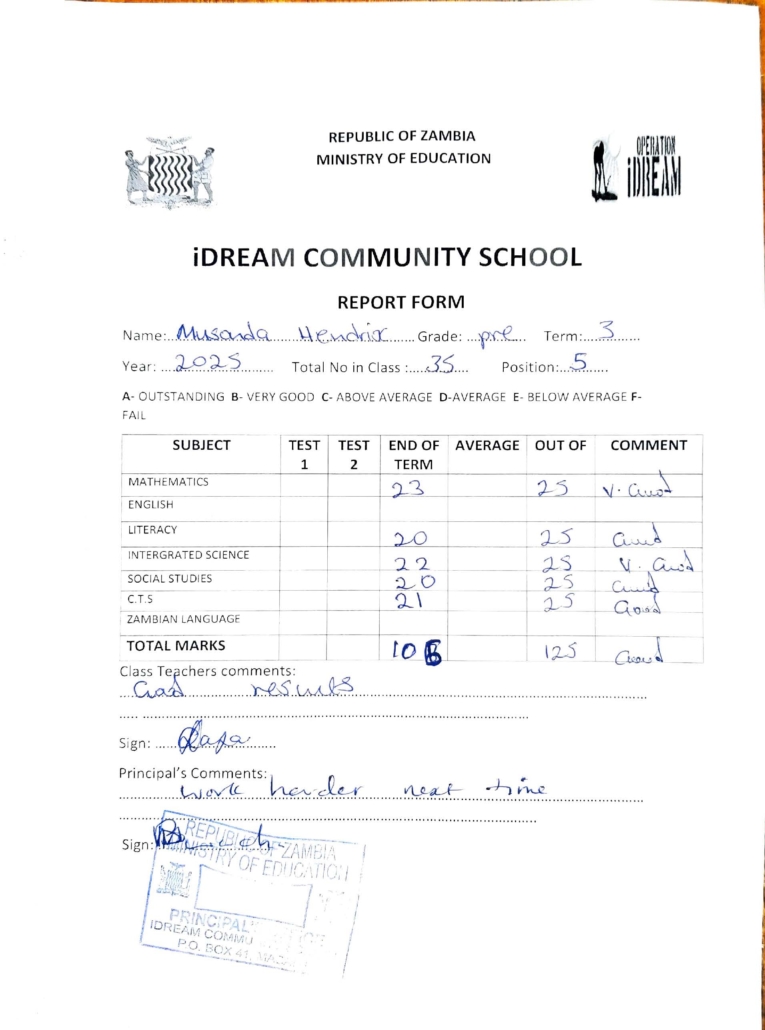 REPUBLIC OF ZAMBIA
MINISTRY OF EDUCATION
OPERATION
iDREAM
iDREAM COMMUNITY SCHOOL
REPORT FORM
Name: Musanda Hendrix Grade: pre Term: 3
Year: 2025 Total No in Class : 35 Position: 5
A- OUTSTANDING B- VERY GOOD C- ABOVE AVERAGE D-AVERAGE E- BELOW AVERAGE F-
FAIL
SUBJECT TEST 1 TEST 2 END OF TERM AVERAGE OUT OF COMMENT
MATHEMATICS 23 25 V. Good
ENGLISH
LITERACY 20 25 Good
INTERGRATED SCIENCE 22 25 V. Good
SOCIAL STUDIES 20 25 Good
C.T.S 21 25 Good
ZAMBIAN LANGUAGE
TOTAL MARKS 106 125 Good
Class Teachers comments:
Good results
Sign:
Principal's Comments:
work harder next time
Sign:
REPUBLIC OF ZAMBIA
MINISTRY OF EDUCATION
PRINCIPAL'S
IDREAM COMMU
P.O. BOX 41,